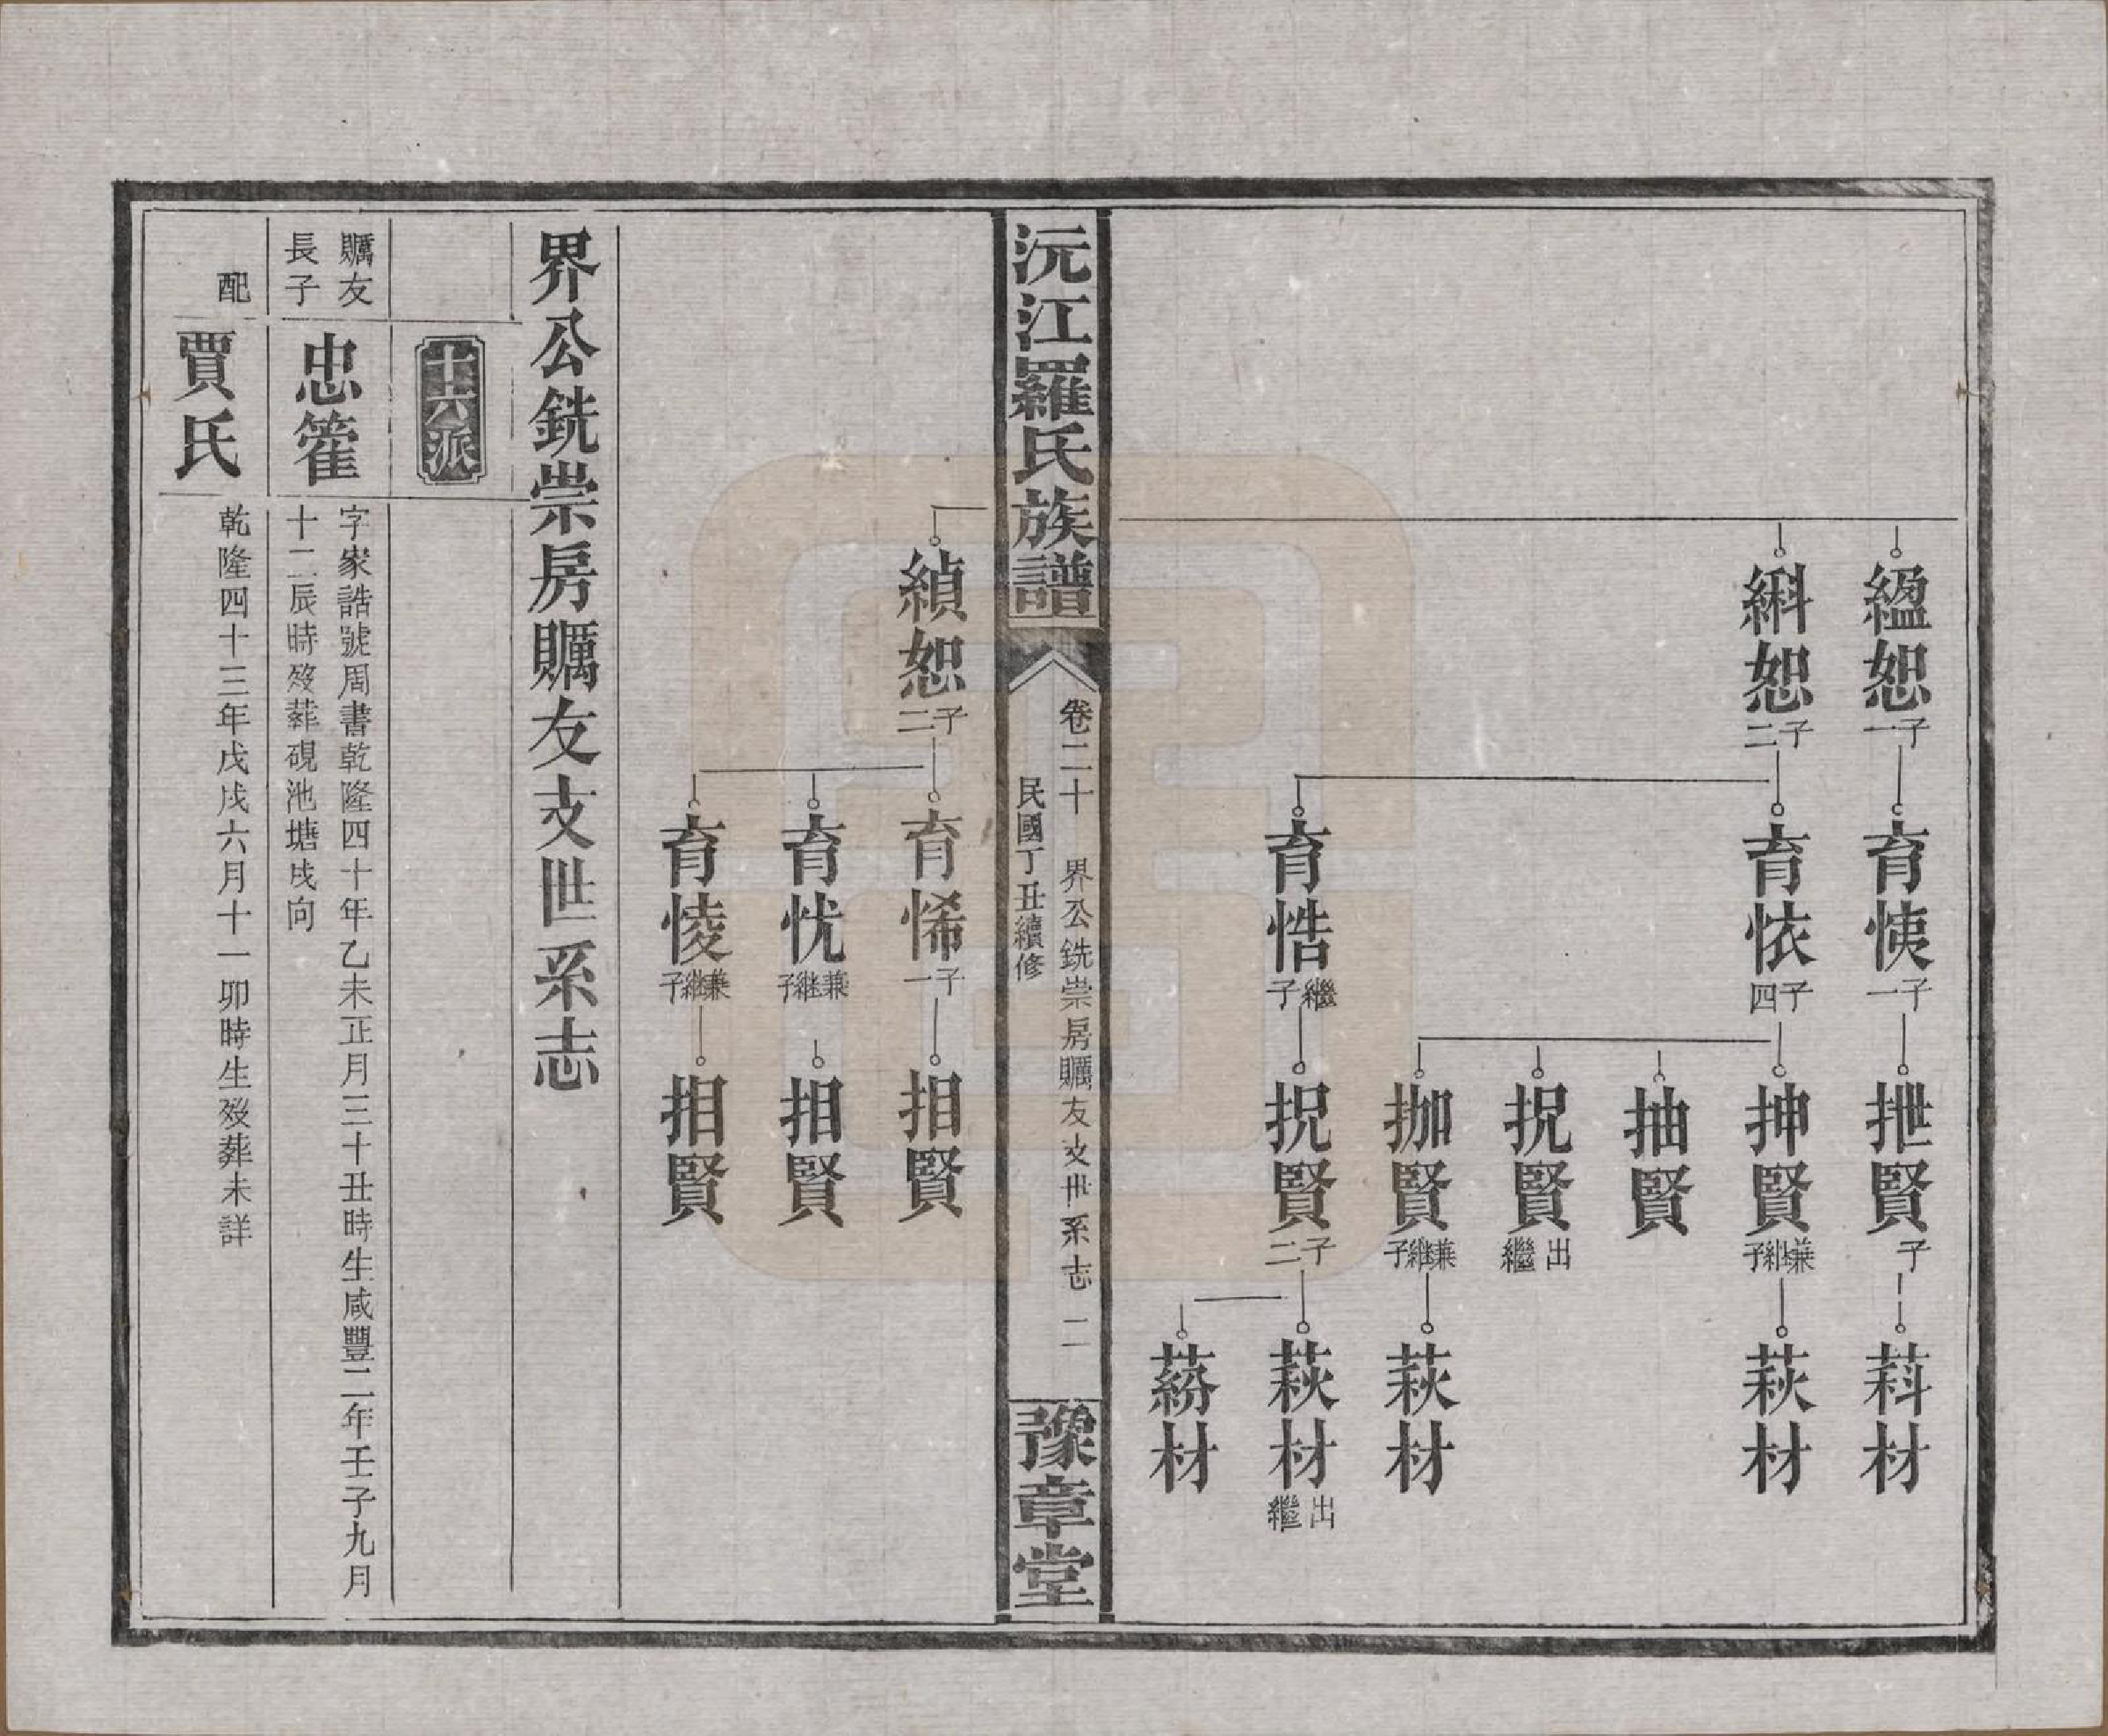 縕恕
子一
育恞
子一
抴賢
子一
萪材
縙恕
子二
育㤅
子四
抻賢
兼繼子
萩材
抽賢
拀賢
出繼
拁賢
兼繼子
萩材
育悎
繼子
拀賢
子二
萩材
出繼
蒶材
沅江羅氏族譜
卷二十　界公銑崇房贎友支世系志　二
民國丁丑續修
豫章堂
縝恕
子二
育悕
子一
抇賢
育忧
兼繼子
抇賢
育㥄
兼繼子
抇賢
界公銑崇房贎友支世系志
十六派
贎友
長子
忠籗
字家誥號周書乾隆四十年乙未正月三十丑時生咸豐二年壬子九月
十二辰時歿葬硯池塘戌向
配
賈氏
乾隆四十三年戊戌六月十一卯時生歿葬未詳